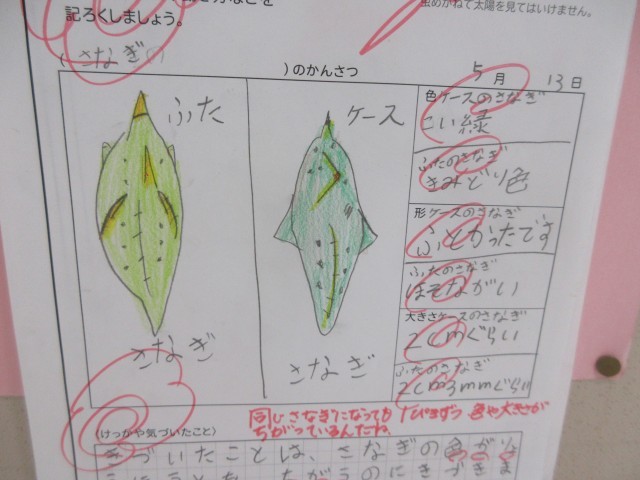 記ろくしましょう。
虫めがねで太陽を見てはいけません。
(さなぎの
)のかんさつ
5月 13日
ふた
さなぎ
ケース
さなぎ
色ケースのさなぎ
こい緑
ふたのさなぎ
きみどり色
形ケースのさなぎ
ふとかったです
ふたのさなぎ
ほそながい
大きさケースのさなぎ
2cmぐらい
ふたのさなぎ
2cm3mmぐらい
同じさなぎになっても 1ぴきずつ 色や大きさが
ちがっているんだね。
(けっかや気づいたこと)
きづいたことは、さなぎの色が